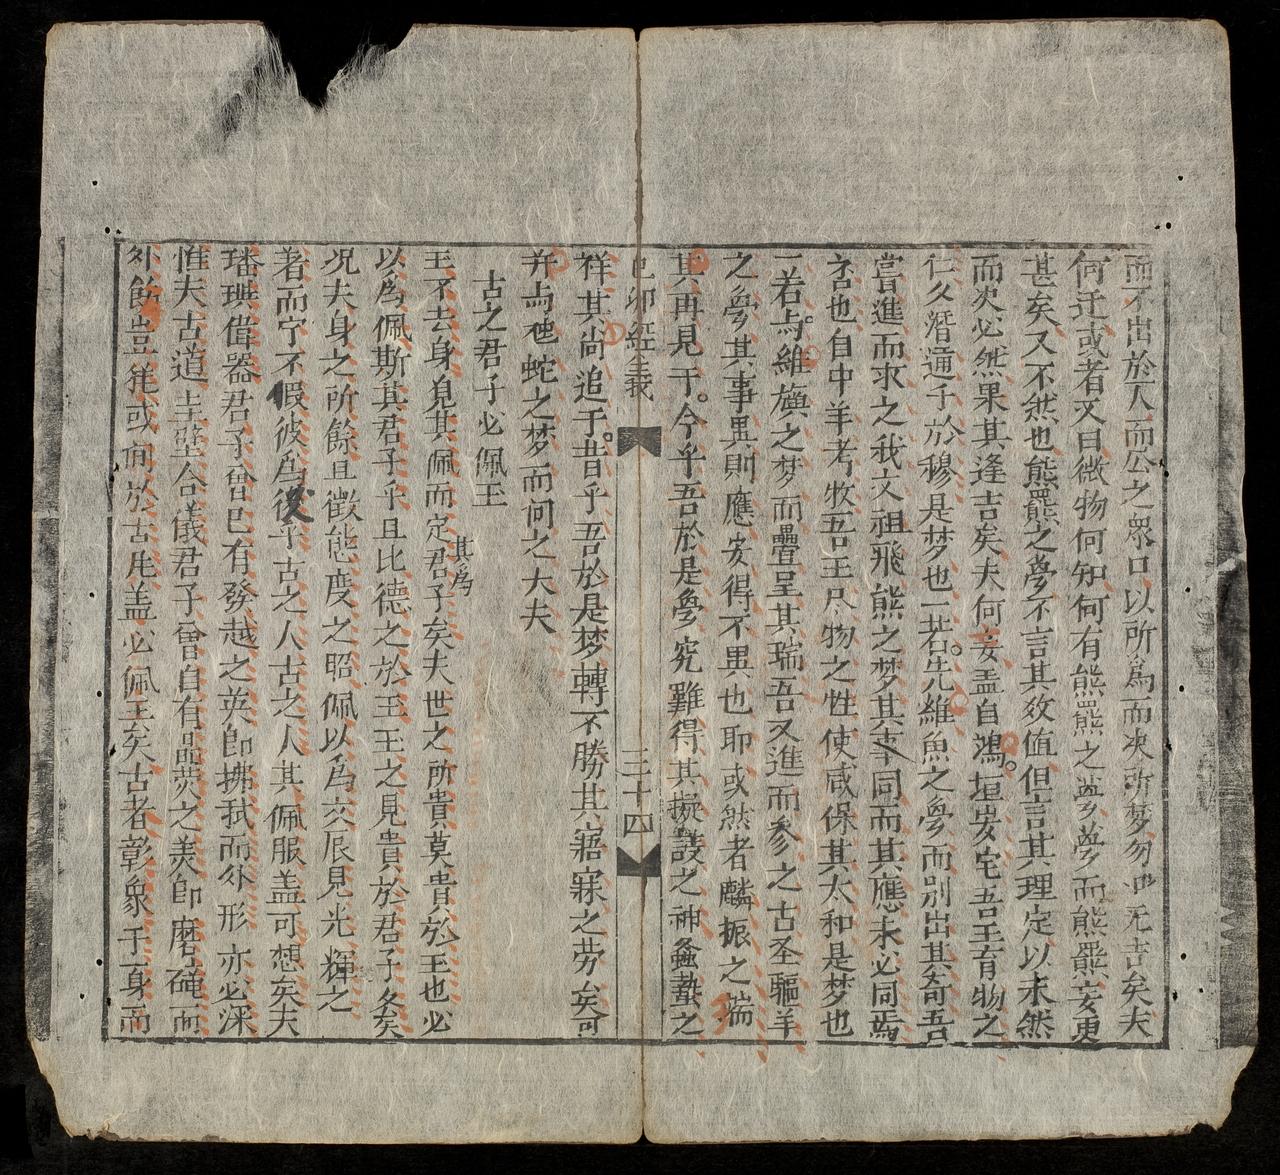 而不出於一人而公之衆口以所爲而决所梦勿卫元吉矣夫
何迂或者又曰微物何知何有熊羆之夢夢而熊羆妄更
甚矣又不然也熊羆之夢不言其效值但言其理定以未然
而决必然果其逢吉矣夫何妄盖自鴻垣安宅吾王育物之
仁久潛通于於穆是梦也一若先維魚之夢而别出其奇吾
嘗進而求之我文祖飛熊之梦其事同而其應未必同焉
否也自中羊考牧吾王尽物之性使咸保其太和是梦也
一若与維旟之梦而疊呈其瑞吾又進而参之古圣驅羊
之夢其事異則應安得不異也耶或然者麟振之瑞
其再見于今乎吾於是夢究難得其擬議之神螽蟄之
祥其尚追于昔乎吾於是梦轉不勝其寤寐之劳矣可
并与虺蛇之梦而问之大夫
古之君子必佩玉
玉不去身見其佩而定其爲君子矣夫世之所貴莫貴於玉也必
以爲佩斯其君子乎且比德之於玉玉之見貴於君子久矣
况夫身之所餘且徵態度之昭佩以爲文辰見光輝之
著而宁不假彼爲後乎古之人古之人其佩服盖可想矣夫
璠璵偉器君子曾已有發越之英即拂拭而外形亦必深
惟夫古道圭璧合儀君子曾自有晶熒之美即磨礲而
外飾豈徒或向於古尨盖必佩玉矣古者彰象于身而
己卯經義
三十四